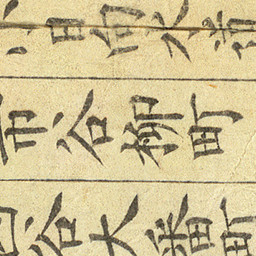 日向
市谷柳町
谷大番町